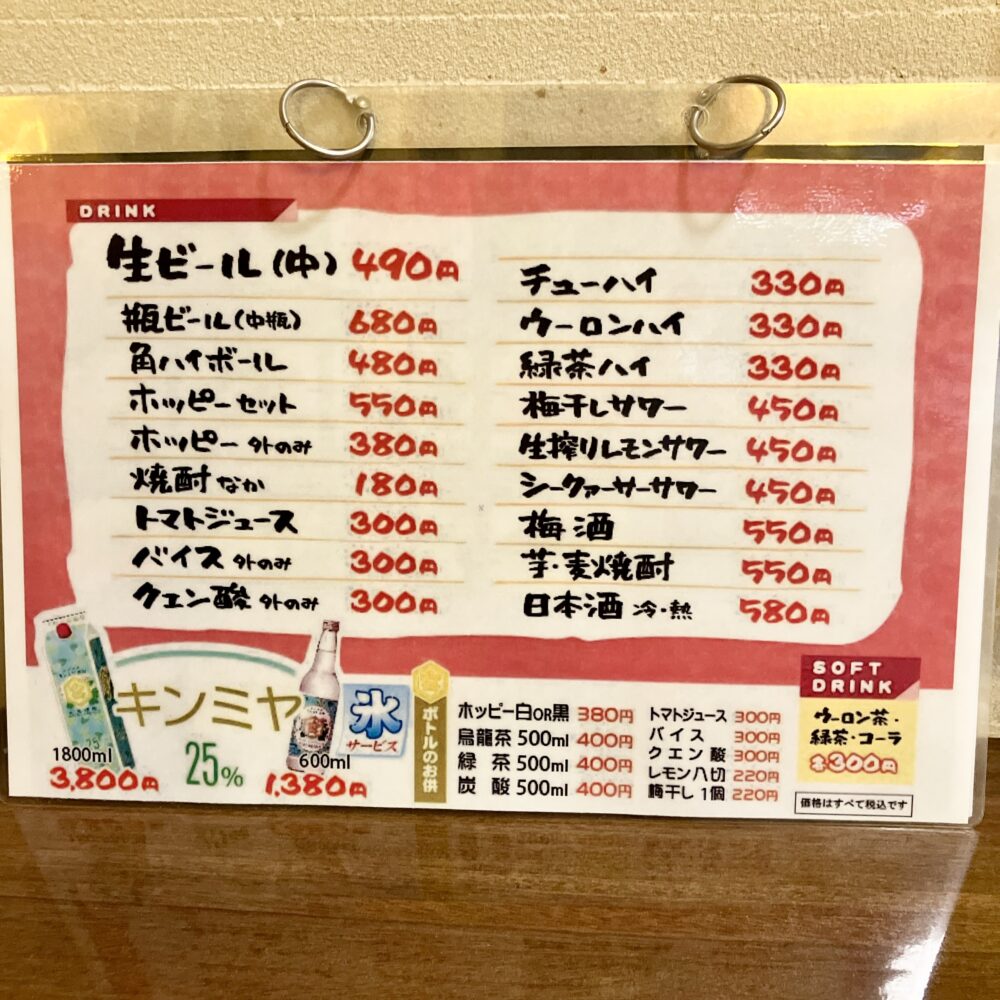 DRINK
生ビール(中) 490円
瓶ビール(中瓶) 680円
角ハイボール 480円
ホッピーセット 550円
ホッピー 外のみ 380円
焼酎 なか 180円
トマトジュース 300円
バイス 外のみ 300円
クエン酸 外のみ 300円
チューハイ 330円
ウーロンハイ 330円
緑茶ハイ 330円
梅干しサワー 450円
生搾りレモンサワー 450円
シークァーサーサワー 450円
梅酒 550円
芋・麦焼酎 550円
日本酒 冷・熱 580円
キンミヤ
25%
1800ml
3,800円
600ml
1,380円
氷
サービス
ボトルのお供
ホッピー白OR黒 380円
烏龍茶 500ml 400円
緑茶 500ml 400円
炭酸 500ml 400円
トマトジュース 300円
バイス 300円
クエン酸 300円
レモン八切 220円
梅干し 1個 220円
SOFT
DRINK
ウーロン茶・
緑茶・コーラ
各300円
価格はすべて税込です